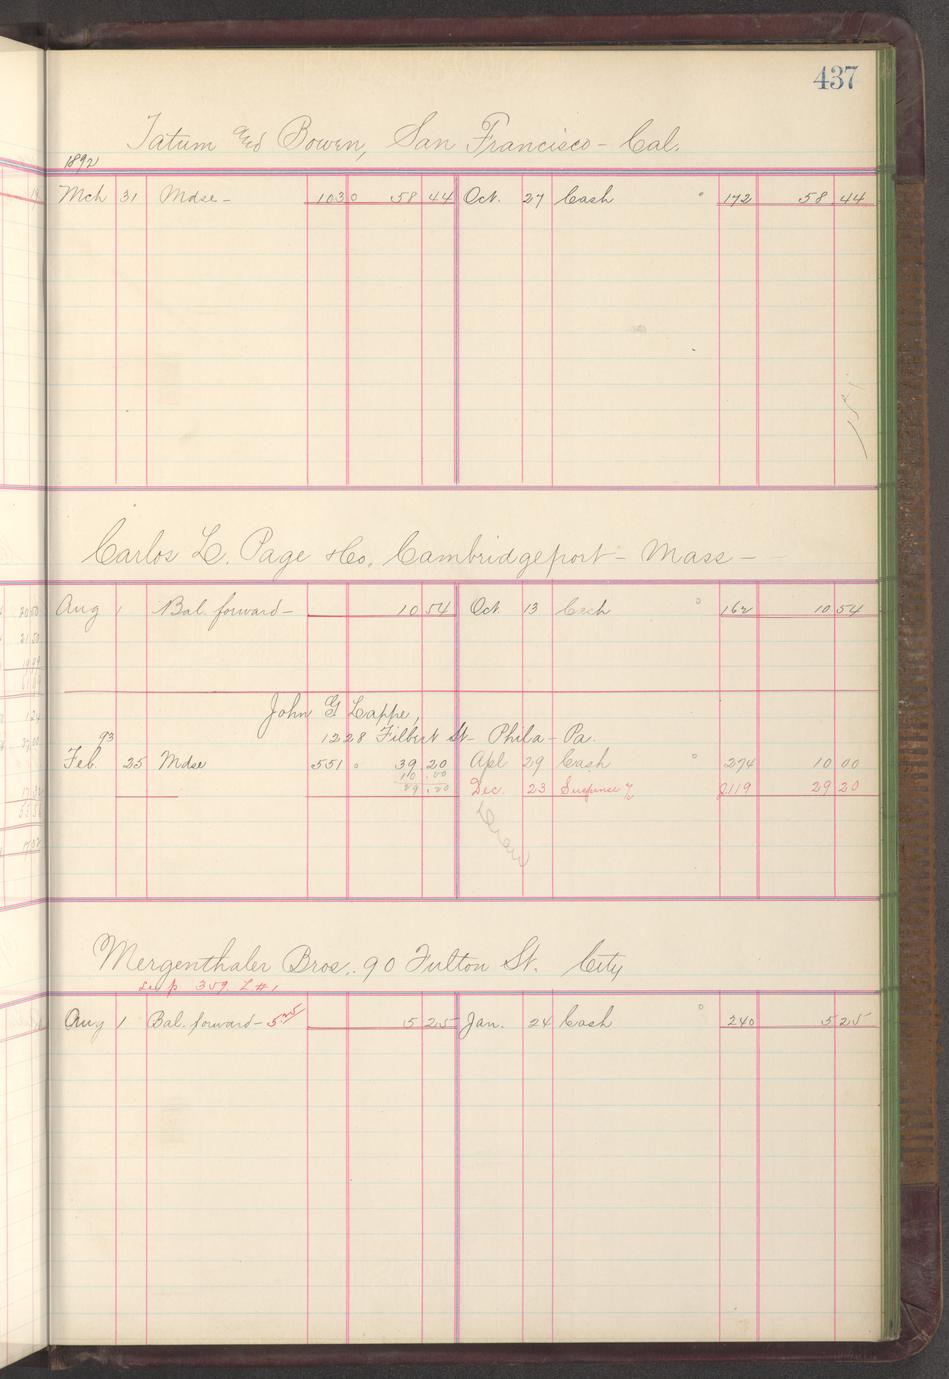 437
Tatum and Bowen, San Francisco - Cal.
1892
Mch 31 Mdse - 103 58 44 Oct. 27 Cash 172 58 44
Carlos L. Page & Co. Cambridgeport - Mass -
Aug 1 Bal. forward - 10 54 Oct 13 Cash 162 10 54
John G Lappe,
1228 Filbert St - Phila - Pa.
93
Feb. 25 Mdse 551 39 20 Apl 29 Cash 274 10 00
10 00
29 20 Dec. 23 Suspense % J119 29 20
Mergenthaler Bros,. 90 Fulton St. City
see p 359. L #1
Aug 1 Bal. forward - 5 25 Jan. 24 Cash 240 5 25